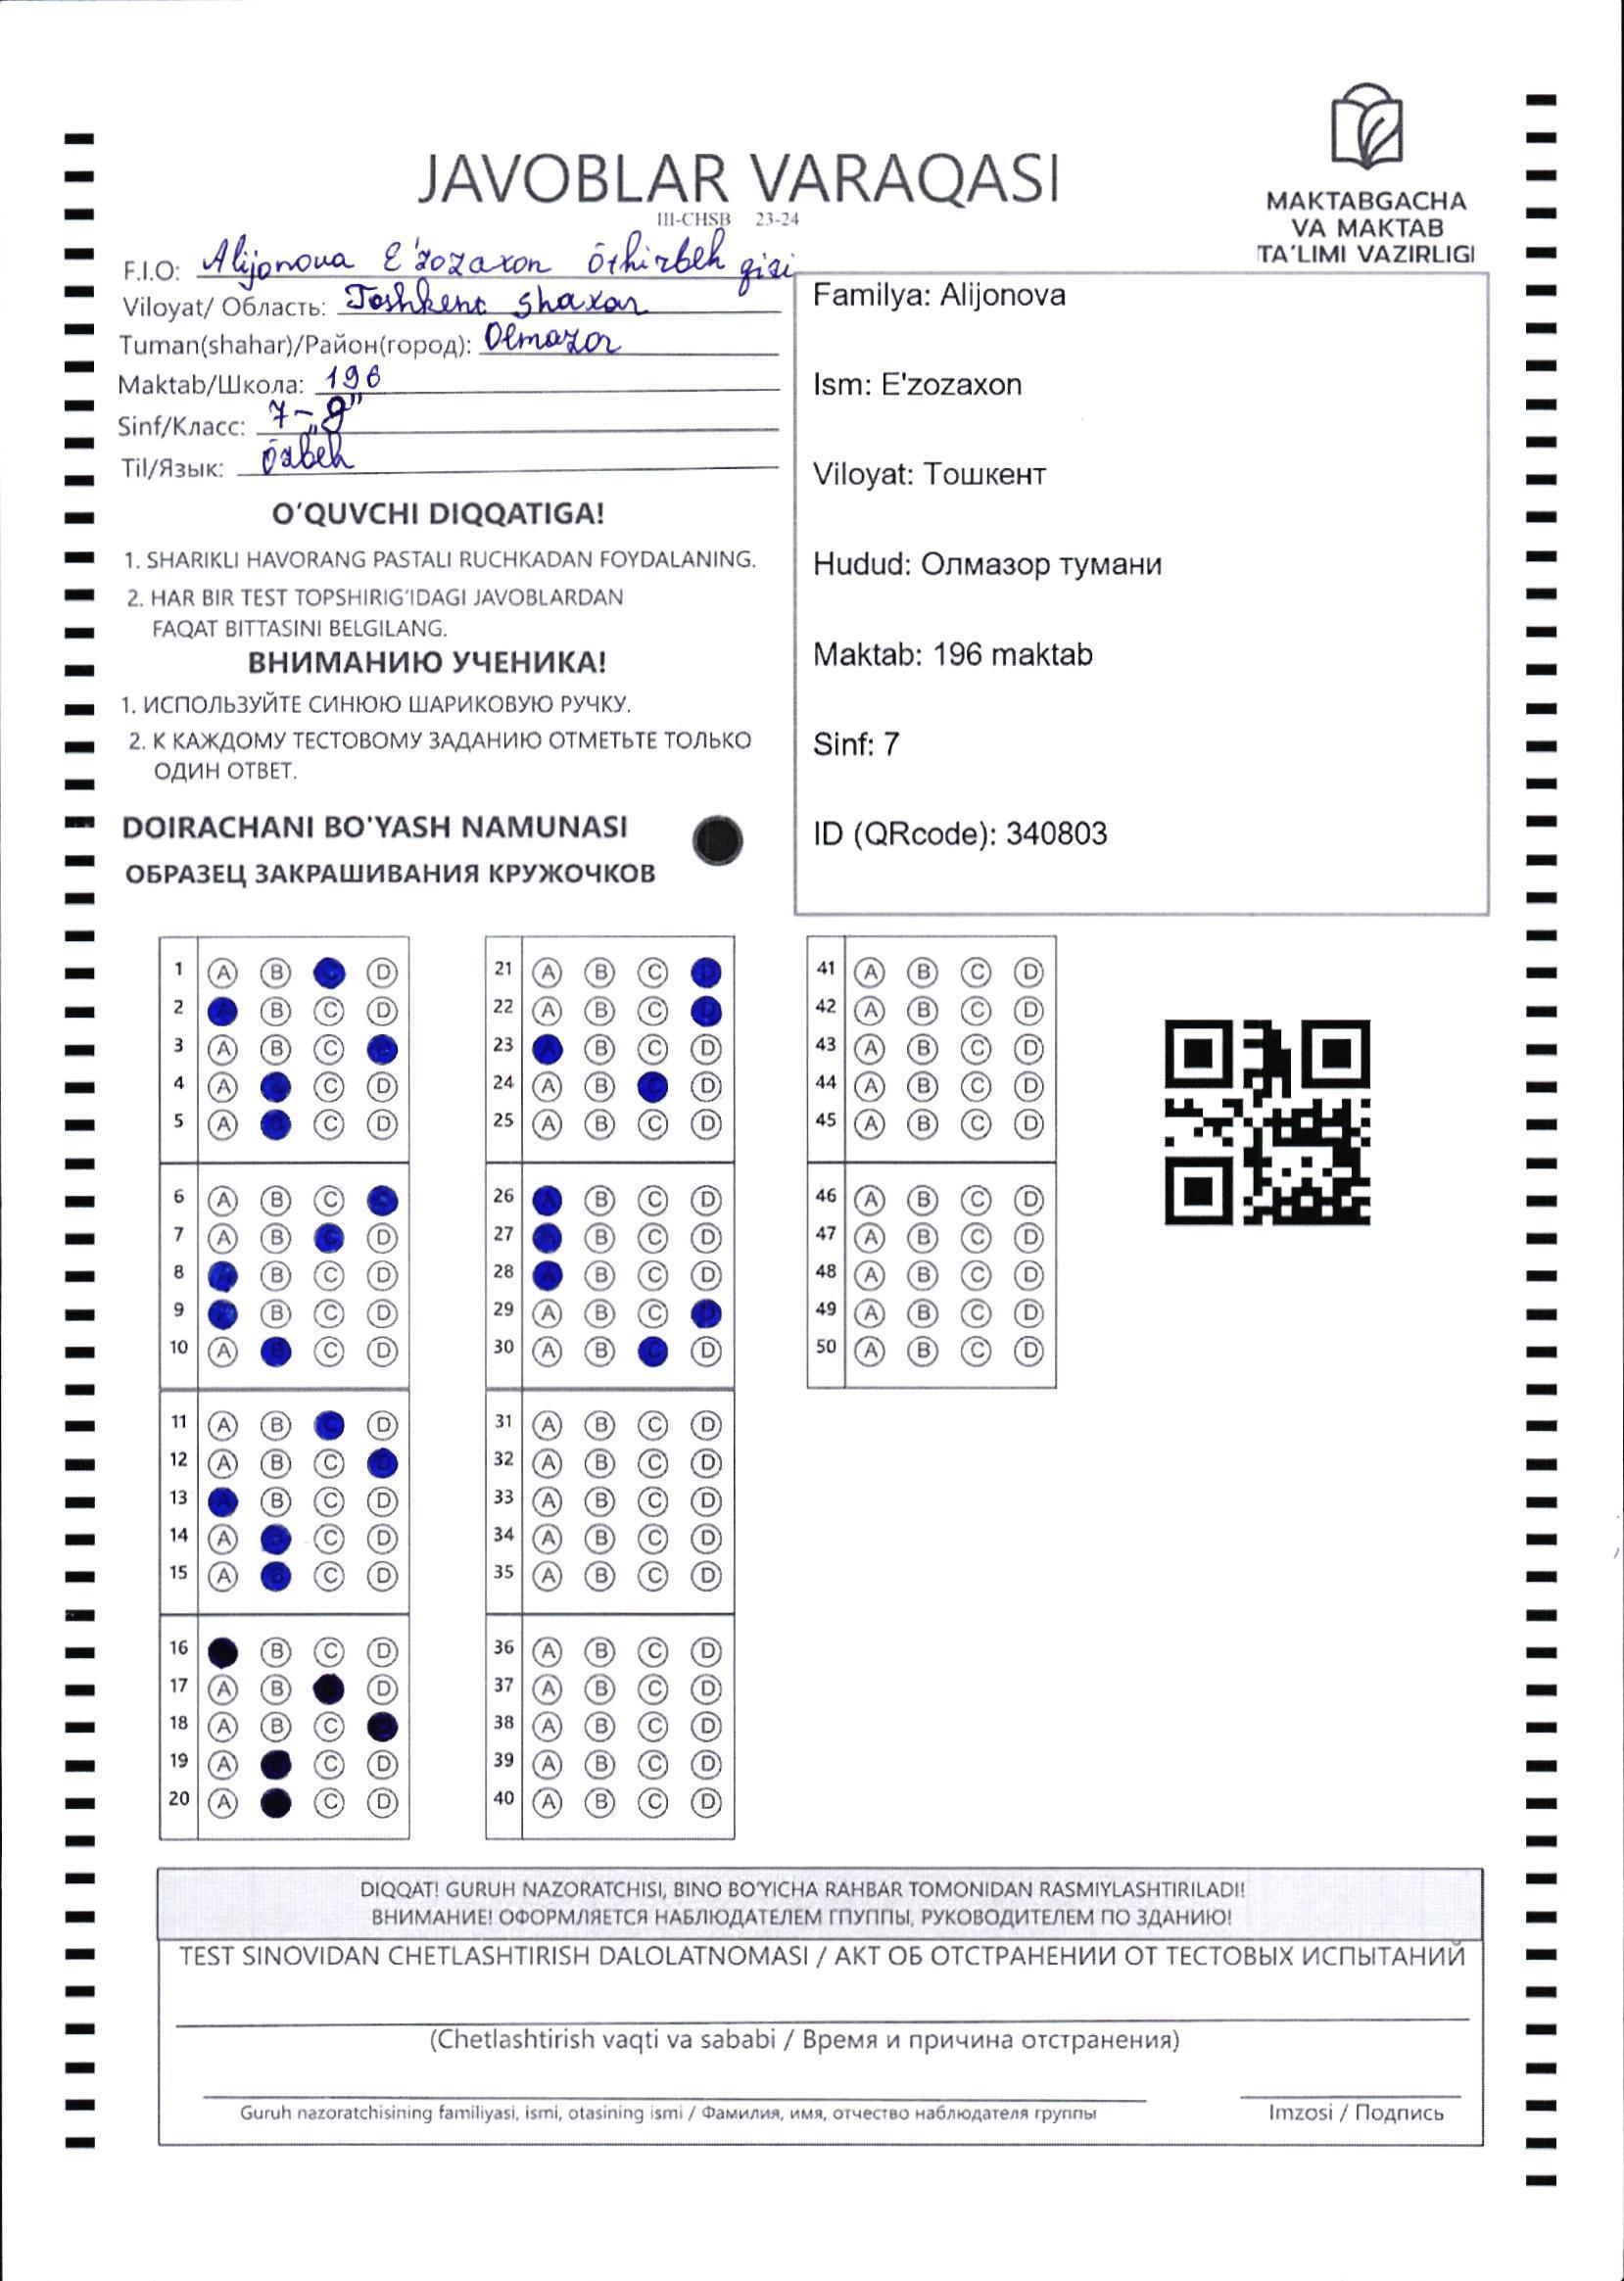 JAVOBLAR VARAQASI
III-CHSB 23-24
MAKTABGACHA
VA MAKTAB
TA'LIMI VAZIRLIGI
F.I.O: Alijonova E'zozaxon Otkirbek qizi
Viloyat/ Область: Toshkent shaxar
Tuman(shahar)/Район(город): Olmazor
Maktab/Школа: 196
Sinf/Класс: 7-"g"
Til/Язык: Ozbek
Familya: Alijonova
Ism: E'zozaxon
Viloyat: Тошкент
Hudud: Олмазор тумани
Maktab: 196 maktab
Sinf: 7
ID (QRcode): 340803
O'QUVCHI DIQQATIGA!
1. SHARIKLI HAVORANG PASTALI RUCHKADAN FOYDALANING.
2. HAR BIR TEST TOPSHIRIG'IDAGI JAVOBLARDAN
FAQAT BITTASINI BELGILANG.
ВНИМАНИЮ УЧЕНИКА!
1. ИСПОЛЬЗУЙТЕ СИНЮЮ ШАРИКОВУЮ РУЧКУ.
2. К КАЖДОМУ ТЕСТОВОМУ ЗАДАНИЮ ОТМЕТЬТЕ ТОЛЬКО
ОДИН ОТВЕТ.
DOIRACHANI BO'YASH NAMUNASI
ОБРАЗЕЦ ЗАКРАШИВАНИЯ КРУЖОЧКОВ
1 A B D
2 A B C D
3 A B C
4 A C D
5 A B C D
6 A B C
7 A B C D
8 A B C D
9 A B C D
10 A B C D
11 A B C D
12 A B C D
13 A B C D
14 A C D
15 A B C D
16 B C D
17 A B D
18 A B C
19 A C D
20 A C D
21 A B C D
22 A B C D
23 A B C D
24 A B C D
25 A B C D
26 A B C D
27 A B C D
28 A B C D
29 A B C D
30 A B C D
31 A B C D
32 A B C D
33 A B C D
34 A B C D
35 A B C D
36 A B C D
37 A B C D
38 A B C D
39 A B C D
40 A B C D
41 A B C D
42 A B C D
43 A B C D
44 A B C D
45 A B C D
46 A B C D
47 A B C D
48 A B C D
49 A B C D
50 A B C D
DIQQAT! GURUH NAZORATCHISI, BINO BO'YICHA RAHBAR TOMONIDAN RASMIYLASHTIRILADI!
ВНИМАНИЕ! ОФОРМЛЯЕТСЯ НАБЛЮДАТЕЛЕМ ГПУППЫ, РУКОВОДИТЕЛЕМ ПО ЗДАНИЮ!
TEST SINOVIDAN CHETLASHTIRISH DALOLATNOMASI / АКТ ОБ ОТСТРАНЕНИИ ОТ ТЕСТОВЫХ ИСПЫТАНИЙ
(Chetlashtirish vaqti va sababi / Время и причина отстранения)
Guruh nazoratchisining familiyasi, ismi, otasining ismi / Фамилия, имя, отчество наблюдателя группы
Imzosi / Подпись